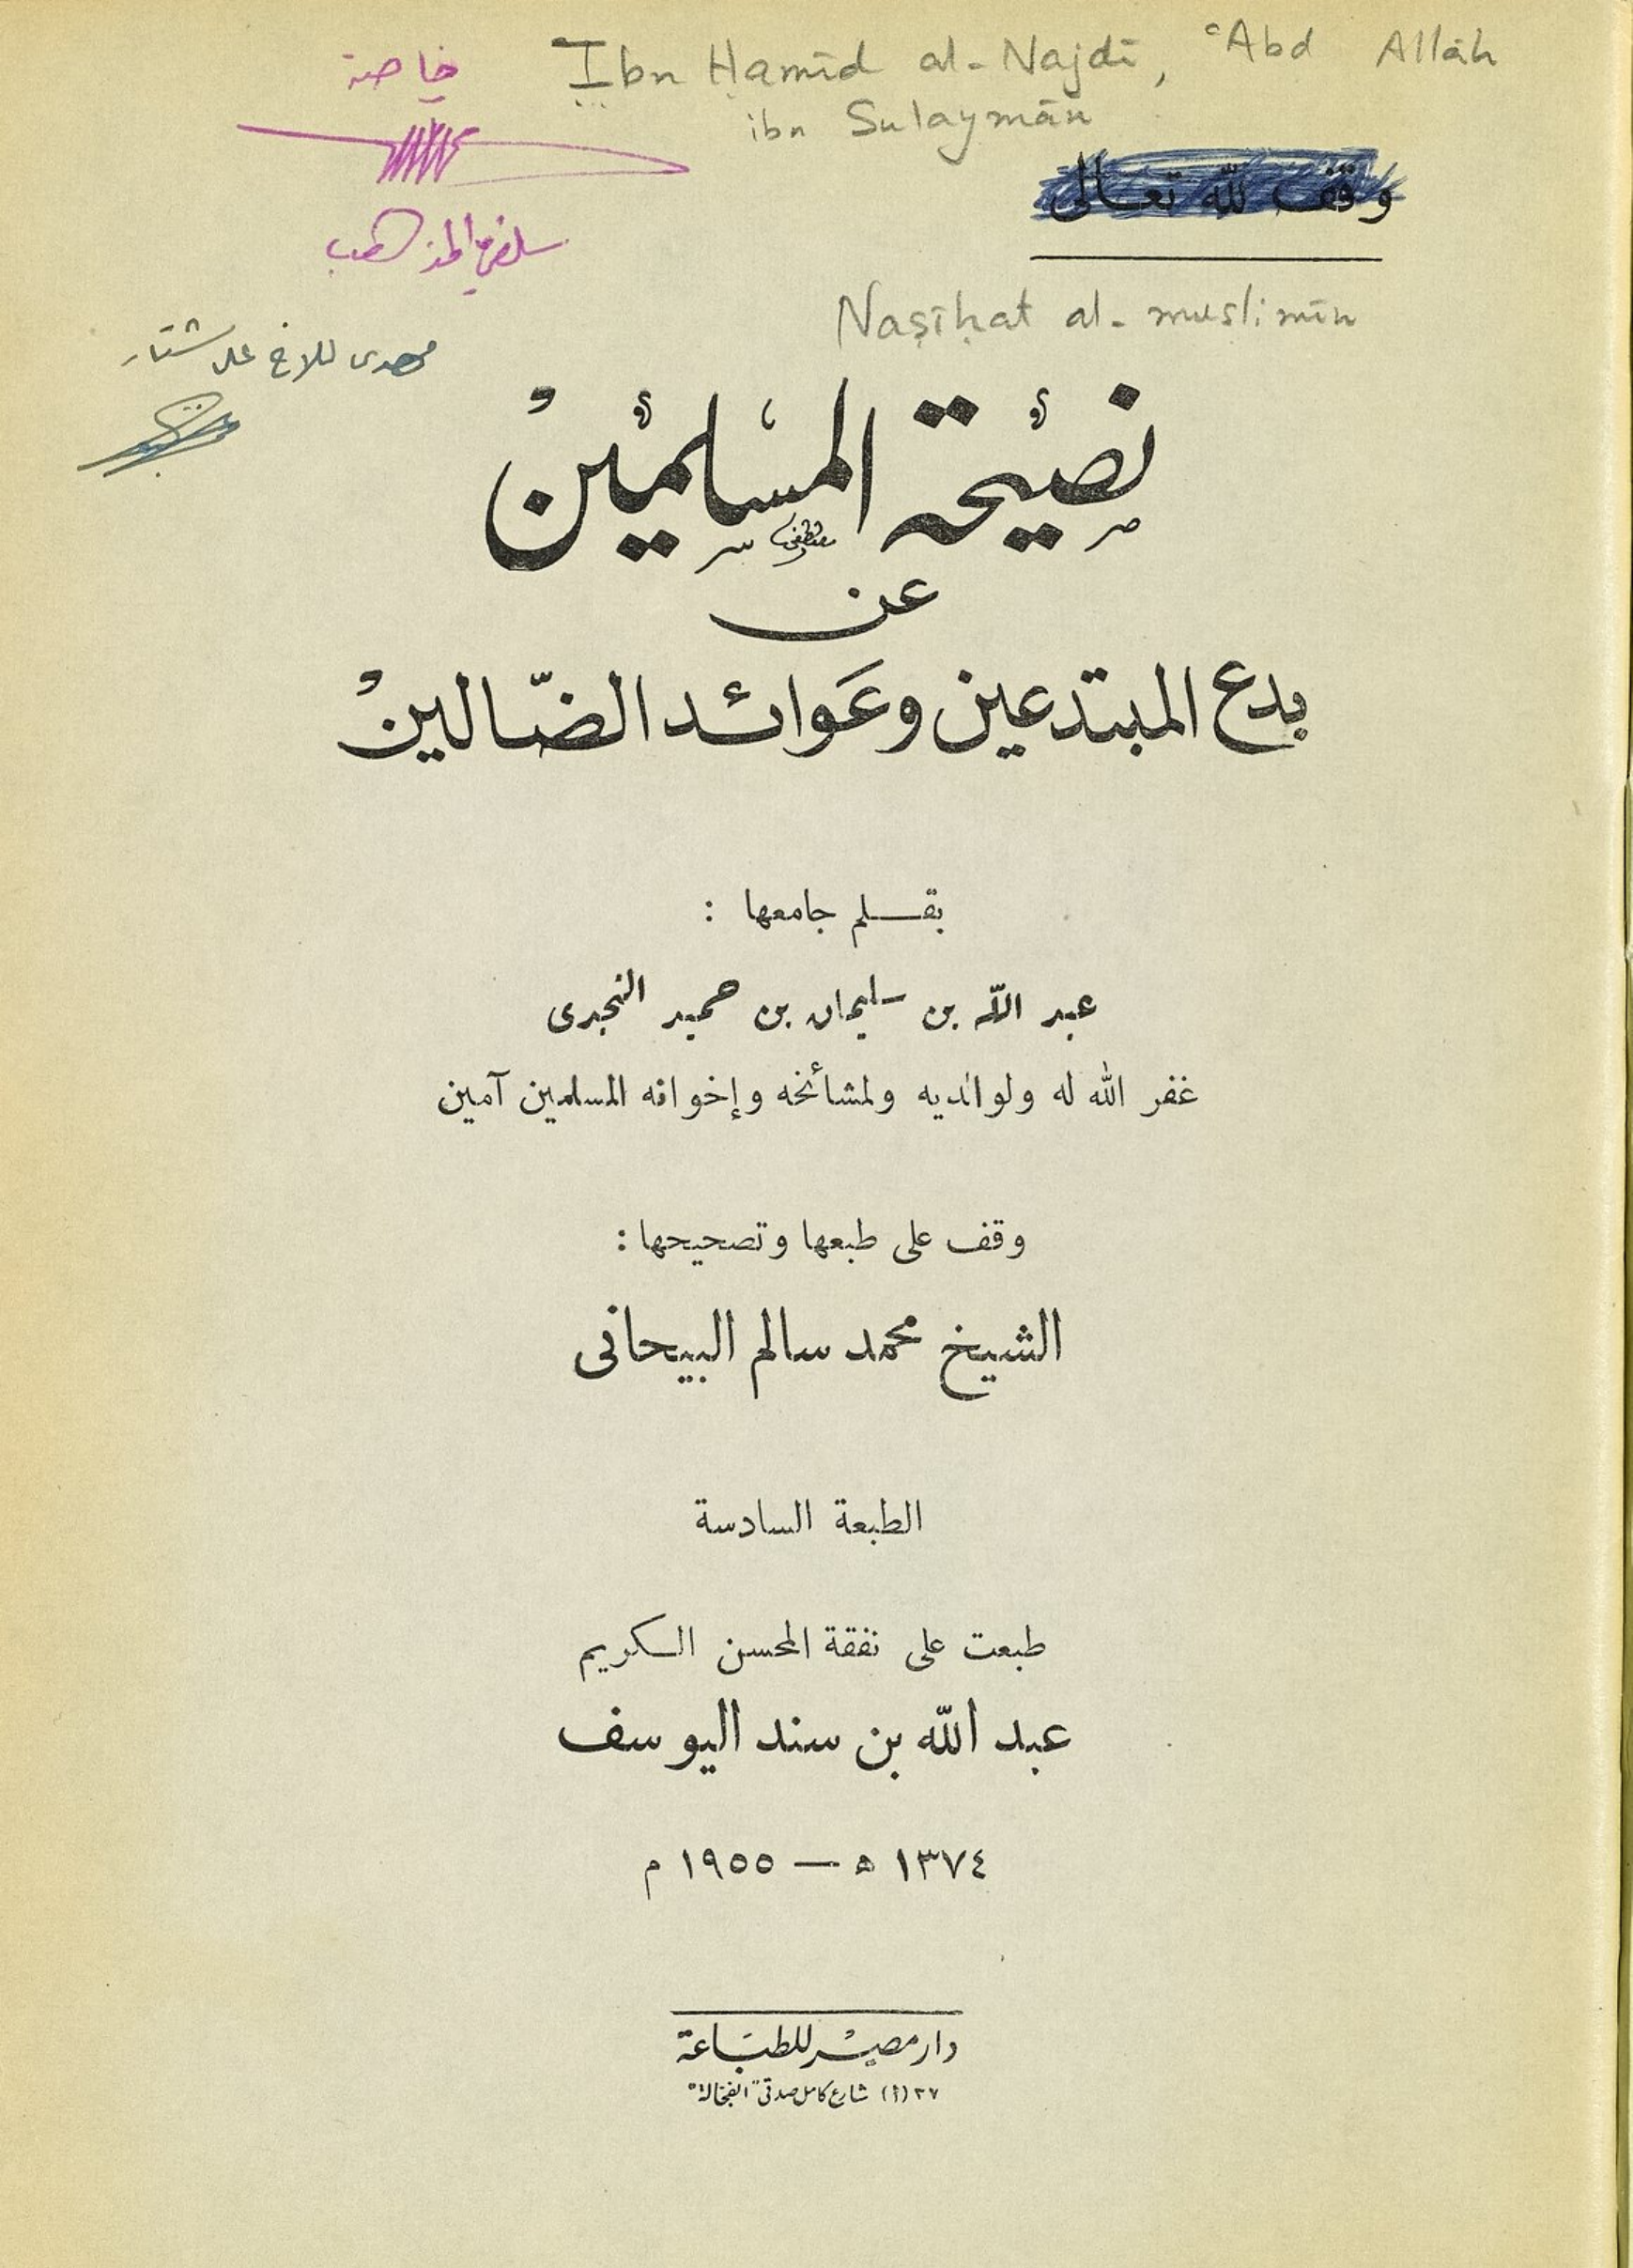 خاصة
Ibn Ḥamīd al-Najdī, ʿAbd Allāh
ibn Sulaymān
وقف لله تعالى
سلفي المذهب
Naṣīḥat al-muslimīn
مهدى للاخ على
نصيحة المسلمين
عن
بدع المبتدعين وعوائد الضّالين
بقلم جامعها :
عبد الله بن سليمان بن حميد النجدى
غفر الله له ولوالديه ولمشائخه وإخوانه المسلمين آمين
وقف على طبعها وتصحيحها :
الشيخ محمد سالم البيحانى
الطبعة السادسة
طبعت على نفقة المحسن الكريم
عبد الله بن سند اليوسف
١٣٧٤ ه — ١٩٥٥ م
دار مصر للطباعة
٣٧ (أ) شارع كامل صدقى "الفجالة"